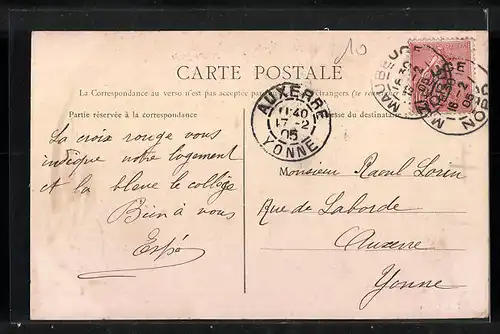 10
CARTE POSTALE
La Correspondance au verso n'est pas acceptée par étrangers (se
Partie réservée à la correspondance
esse du destinataire
AUXERRE
11-40
17-2
05
YONNE
MAUBEUGE
16-2
05
La croix rouge vous
indique notre logement
et la bleue le collège
Bien à vous
Monsieur Raoul Lorin
Rue de Laborde
Auxerre
Yonne